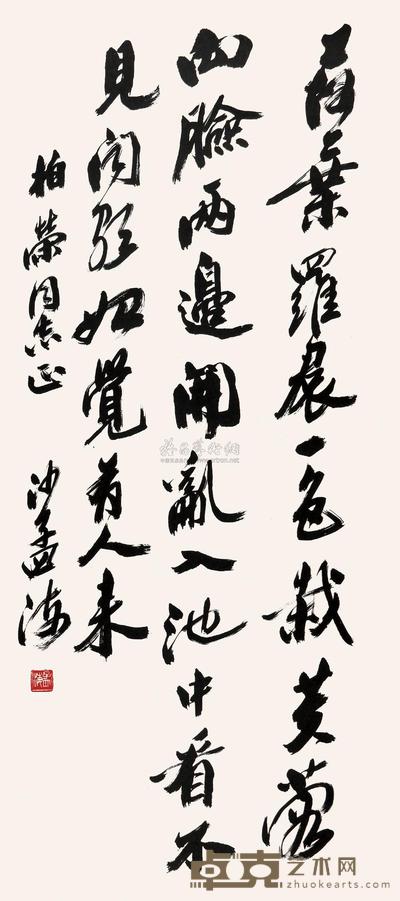 荷葉羅裠一色裁芙蓉
向臉兩邊開亂入池中看不
見聞歌始覺有人来
柏榮同志正 沙孟海
卓克艺术网
zhuokearts.com